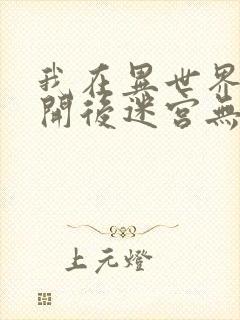 我在異世界
開後迷宮無
上元燈